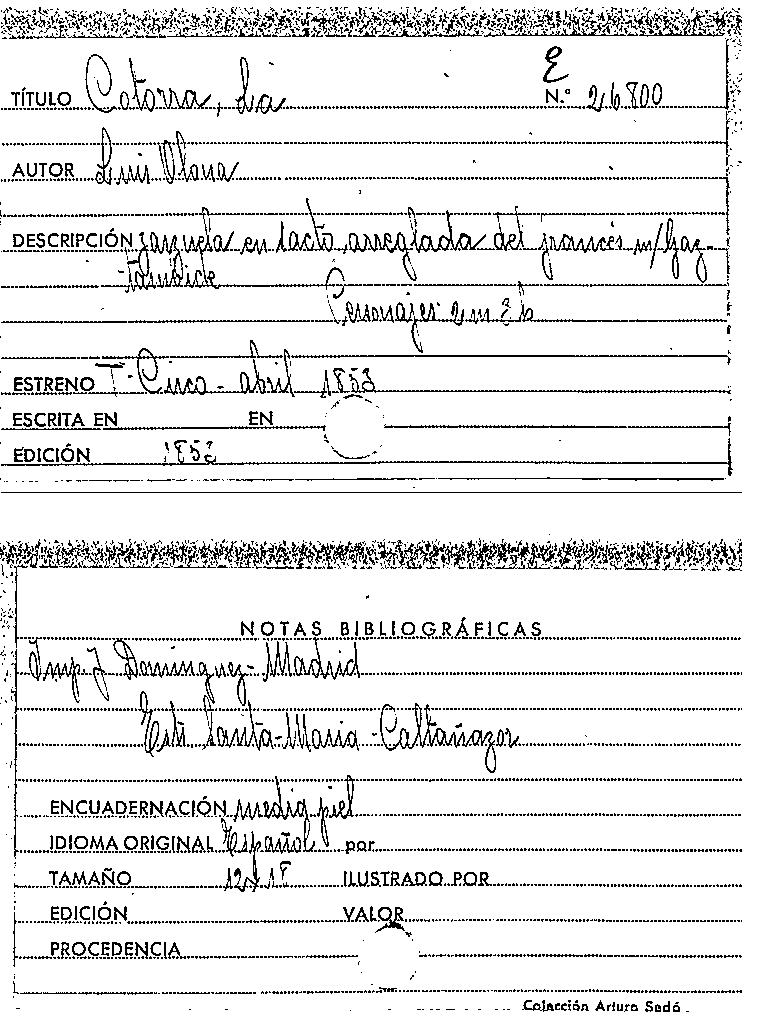 E
TÍTULO Cotorra, La N.º 26800
AUTOR Luis Olona
DESCRIPCIÓN zarzuela en 1 acto arreglada del francés m/ Gaz-
tambide
Personajes 2 m 3 h
ESTRENO T. Circo - abril 1853
ESCRITA EN EN
EDICIÓN 1853
NOTAS BIBLIOGRÁFICAS
Imp. J Dominguez - Madrid
Est: Santa-Maria - Caltañazor
ENCUADERNACIÓN media piel
IDIOMA ORIGINAL Español por
TAMAÑO 12x18 ILUSTRADO POR
EDICIÓN VALOR
PROCEDENCIA
Colección Arturo Sedó.